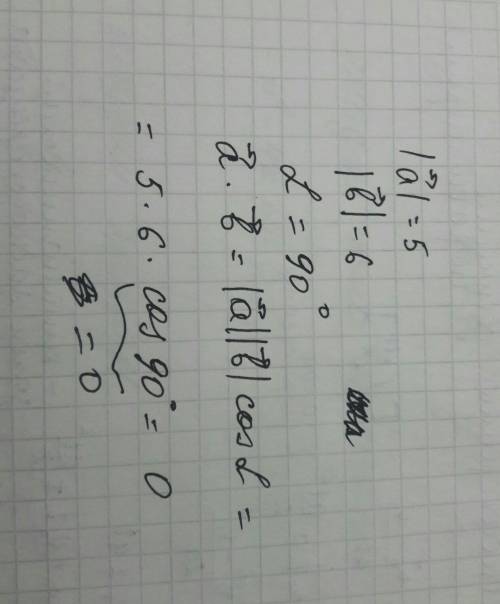 |a⃗| = 5
|b⃗| = 6
α = 90°
a⃗ · b⃗ = |a⃗||b⃗| cos α =
= 5 · 6 · cos 90° = 0
= 0